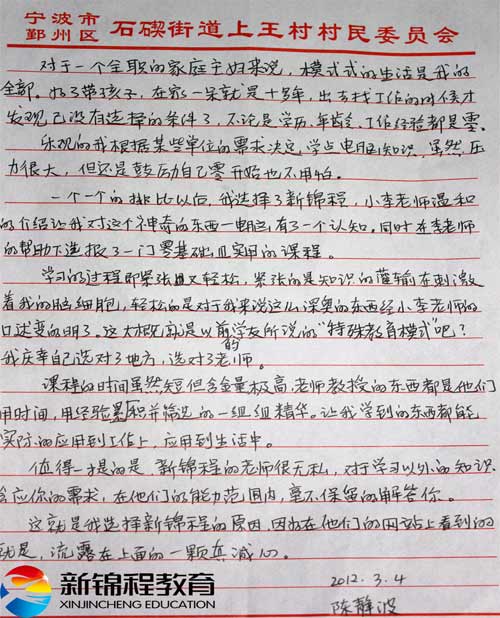 宁波市
鄞州区 石碶街道上王村村民委员会
对于一个全职的家庭主妇来说，模式式的生活是我的
全部。为了带孩子，在家一呆就是十多年，出去找工作的时候才
发现已没有选择的条件了，不论是学历、年龄、工作经验都是零。
乐观的我根据某些单位的需求决定，学点电脑知识，虽然压
力很大，但还是鼓励自己零开始也不用怕。
一个一个的排比以后，我选择了新锦程，小李老师温和
的介绍让我对这个神奇的东西—电脑，有了一个认知。同时在李老师
的帮助下选报了一门零基础且实用的课程。
学习的过程即紧张且又轻松，紧张的是知识的灌输在刺激
着我的脑细胞，轻松的是对于我来说这么深奥的东西经小李老师的
口述变的明了。这大概就是以前学友所说的“特殊教育模式”吧？
我庆幸自己选对了地方，选对了老师。
课程的时间虽然短但含金量极高，老师教授的东西都是他们
用时间，用经验累积并筛选的一组组精华。让我学到的东西都能
实际的应用到工作上，应用到生活中。
值得一提的是，新锦程的老师很无私，对于学习以外的知识，
会应你的需求，在他们的能力范围内，毫不保留的解答你。
这就是我选择新锦程的原因，因为在他们的网站上看到的
就是，流露在上面的一颗真诚心。
2012.3.4
陈静波
新锦程教育
XINJINCHENG EDUCATION